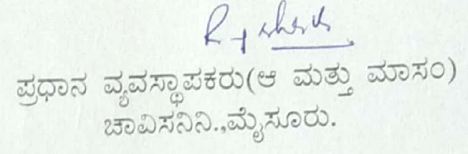 ಪ್ರಧಾನ ವ್ಯವಸ್ಥಾಪಕರು(ಆ ಮತ್ತು ಮಾಸಂ)
ಚಾವಿಸನಿನಿ.,ಮೈಸೂರು.